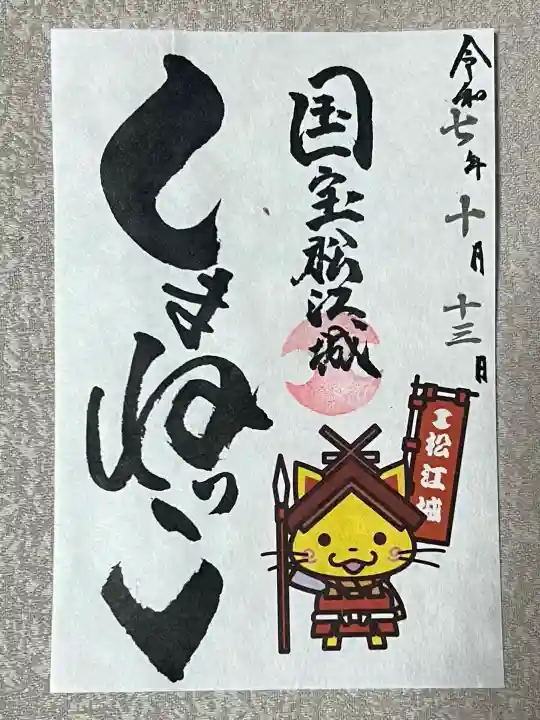 令和七年十月十三日
国宝松江城
しまねっこ
松江城